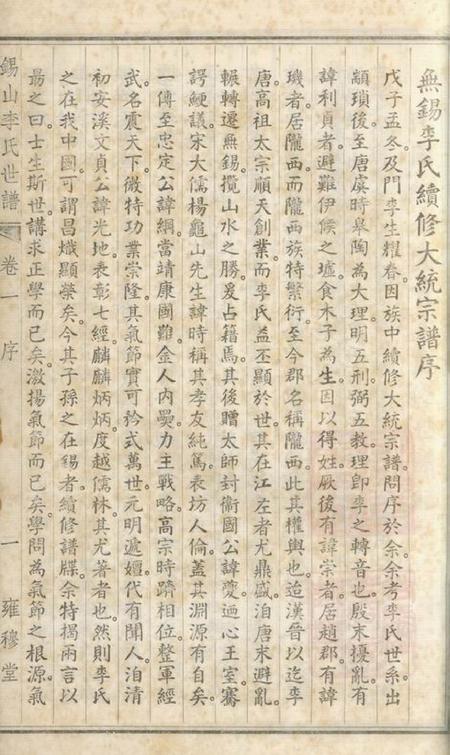 無錫李氏續修大統宗譜序
戊子孟冬及門李生耀春因族中續修大統宗譜問序於余余考李氏世系出
顓瑣後至唐虞時皋陶為大理明五刑弼五教理即李之轉音也殷末擾亂有
諱利貞者避難伊侯之墟食木子為生因以得姓厥後有諱崇者居趙郡有諱
璣者居隴西而隴西族特繁衍至今郡名稱隴西此其權輿也迨漢晉以迄李
唐高祖太宗順天創業而李氏益丕顯於世其在江左者尤鼎盛洎唐末避亂
輾轉遷無錫攬山水之勝爰占籍焉其後贈太師封衛國公諱夔迺心王室騫
諤鯁議宋大儒楊龜山先生諱時稱其孝友純篤表坊人倫蓋其淵源有自矣
一傳至忠定公諱綱當靖康國難金人內㢲力主戰略高宗時躋相位整軍經
武名震天下微特功業崇隆其氣節實可矜式萬世元明遞嬗代有聞人洎清
初安溪文貞公諱光地表彰七經麟麟炳炳度越儒林其尤著者也然則李氏
之在我中國可謂昌熾顯榮矣今其子孫之在錫者續修譜牒余特揭兩言以
勗之曰士生斯世講求正學而已矣激揚氣節而已矣學問為氣節之根源氣
錫山李氏世譜 卷一 序 一 雍穆堂